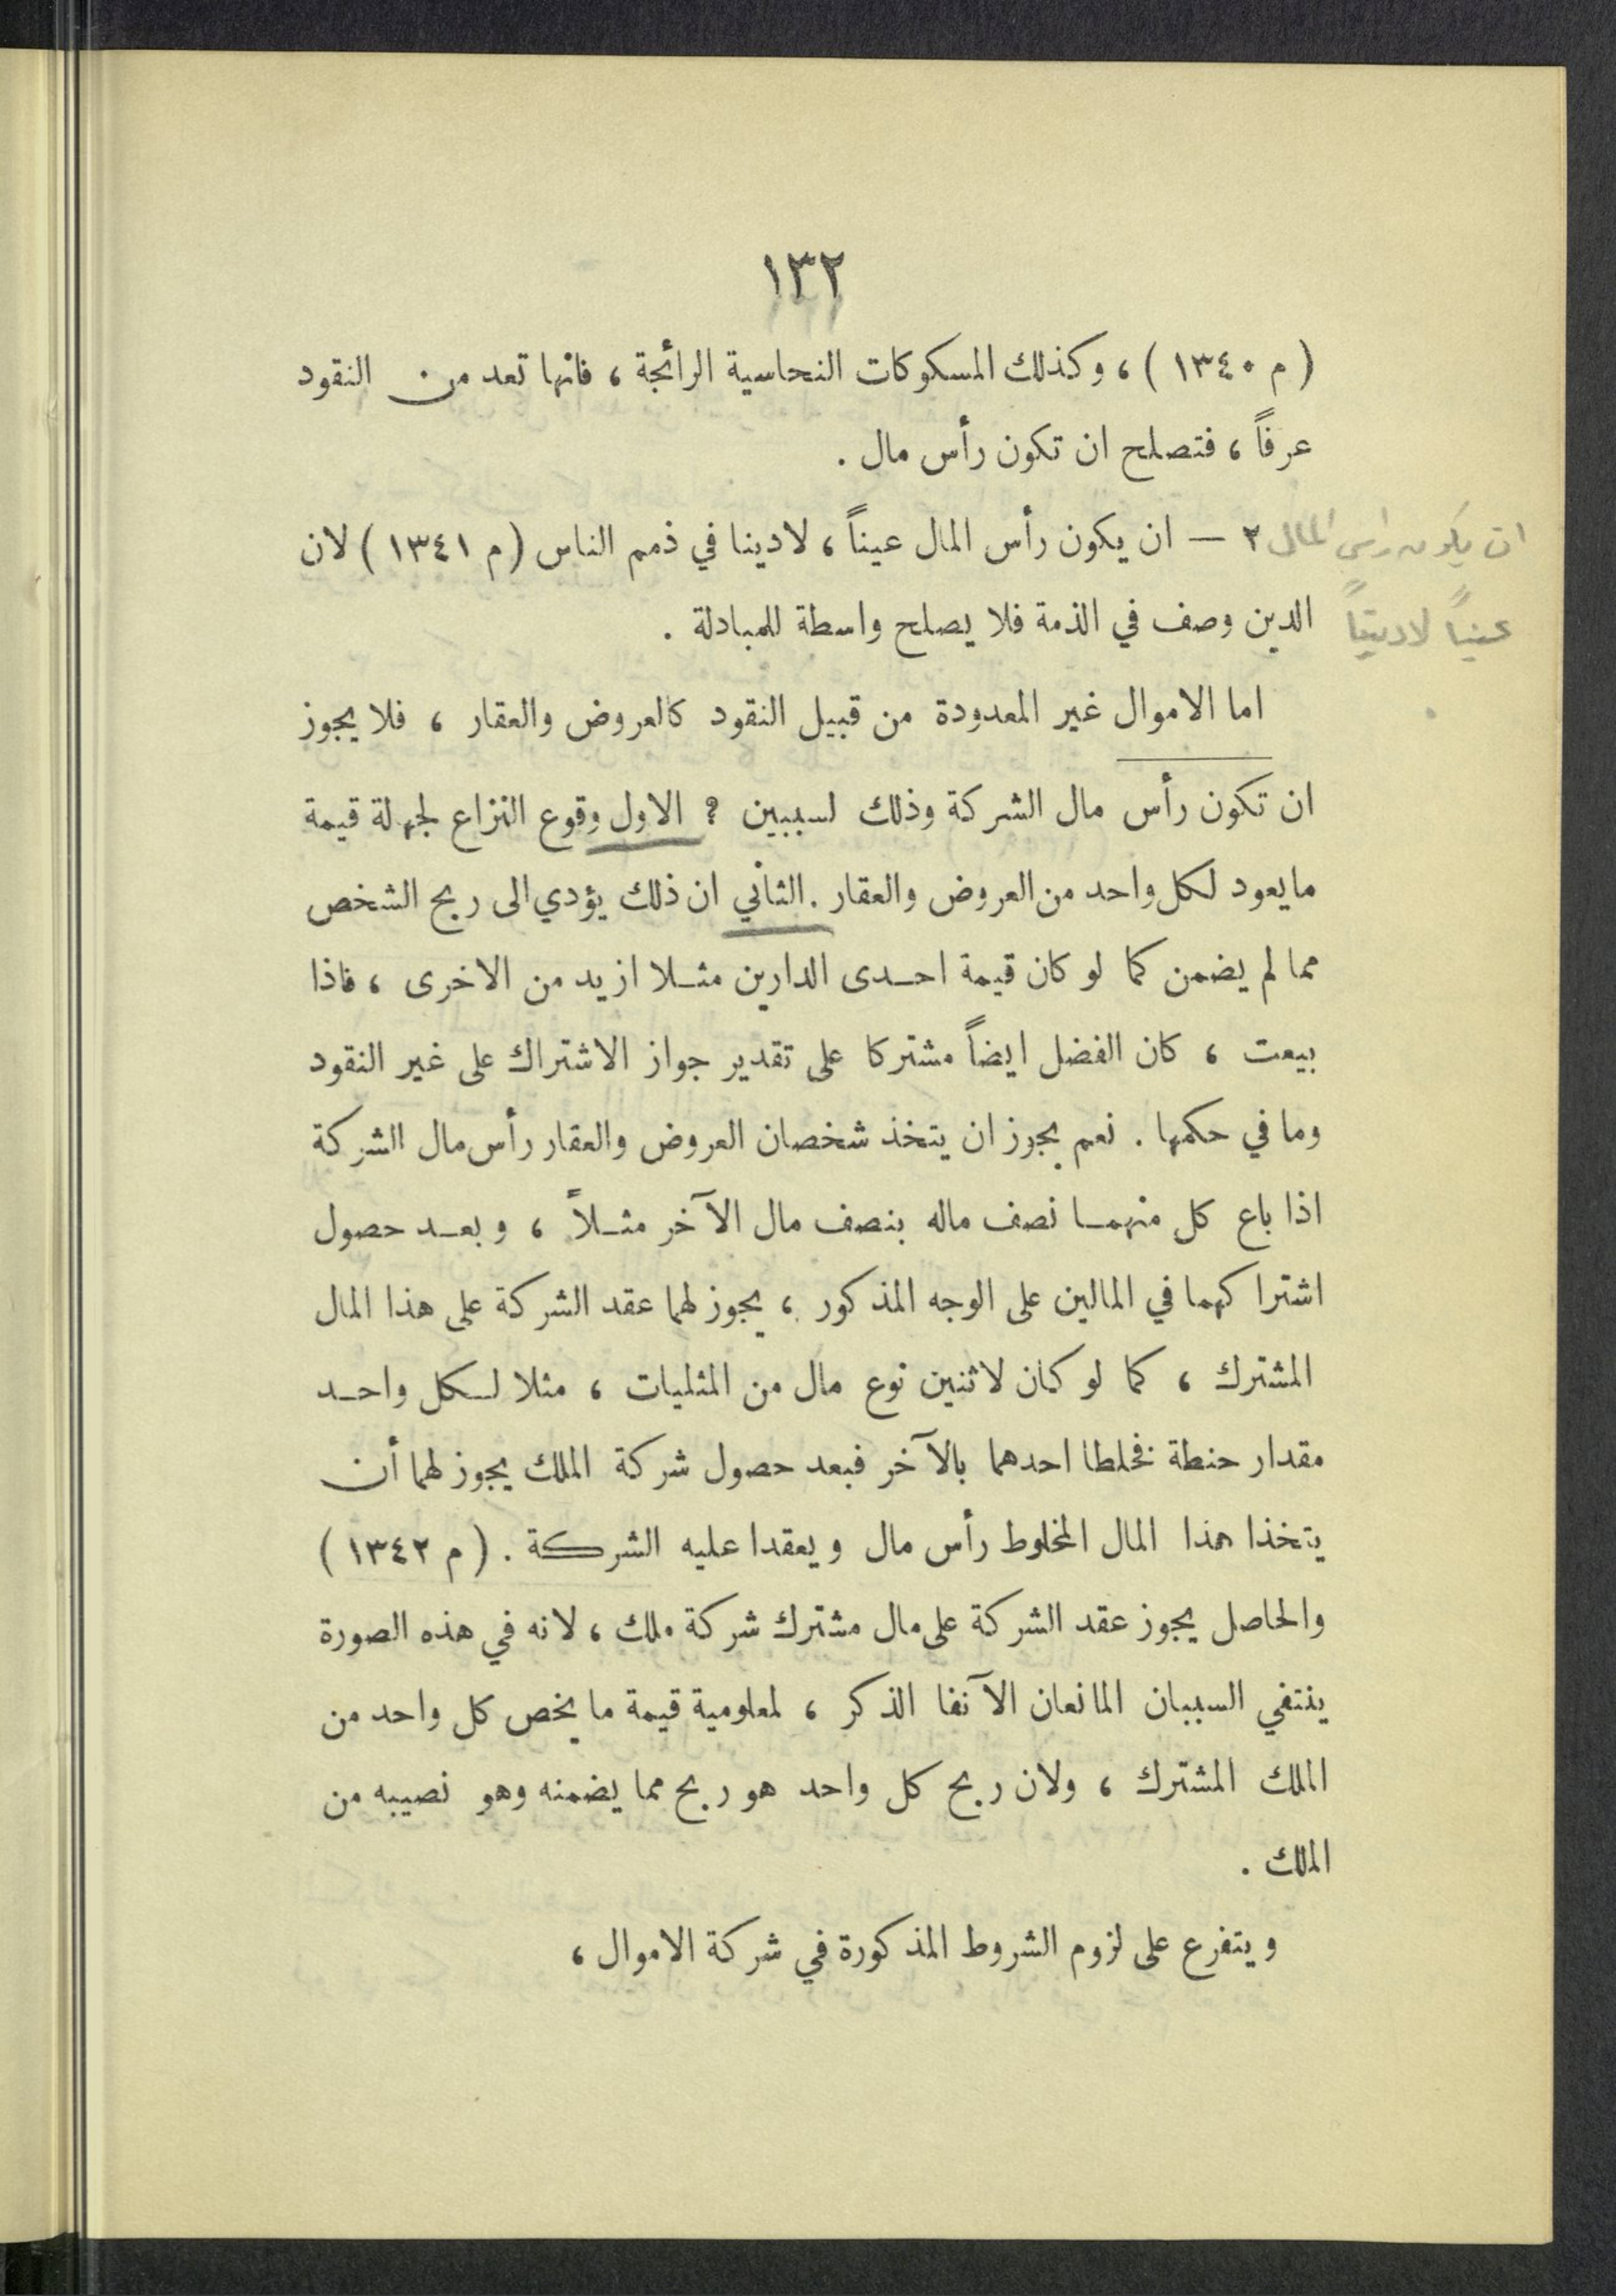 ١٣٢
( م ١٣٤٠ ) ، وكذلك المسكوكات النحاسية الرائجة ، فانها تعد من النقود
عرفاً ، فتصلح ان تكون رأس مال .
٢ — ان يكون رأس المال عيناً ، لا دينا في ذمم الناس ( م ١٣٤١ ) لان
ان يكون راس المال
الدين وصف في الذمة فلا يصلح واسطة للمبادلة .
عيناً لا ديناً
اما الاموال غير المعدودة من قبيل النقود كالعروض والعقار ، فلا يجوز
ان تكون رأس مال الشركة وذلك لسببين ؟ الاول وقوع النزاع لجهلة قيمة
ما يعود لكل واحد من العروض والعقار . الثاني ان ذلك يؤدي الى ربح الشخص
مما لم يضمن كما لو كان قيمة احدى الدارين مثلا ازيد من الاخرى ، فاذا
بيعت ، كان الفضل ايضاً مشتركا على تقدير جواز الاشتراك على غير النقود
وما في حكمها . نعم يجوز ان يتخذ شخصان العروض والعقار رأس مال الشركة
اذا باع كل منهما نصف ماله بنصف مال الآخر مثلاً ، وبعد حصول
اشتراكهما في المالين على الوجه المذكور ، يجوز لهما عقد الشركة على هذا المال
المشترك ، كما لو كان لاثنين نوع مال من المثليات ، مثلا لكل واحد
مقدار حنطة فخلطا احدهما بالآخر فبعد حصول شركة الملك يجوز لهما أن
يتخذا هذا المال المخلوط رأس مال ويعقدا عليه الشركة . ( م ١٣٤٢ )
والحاصل يجوز عقد الشركة على مال مشترك شركة ملك ، لانه في هذه الصورة
ينتفي السببان المانعان الآنفا الذكر ، لمعلومية قيمة ما يخص كل واحد من
الملك المشترك ، ولان ربح كل واحد هو ربح مما يضمنه وهو نصيبه من
الملك .
ويتفرع على لزوم الشروط المذكورة في شركة الاموال ،